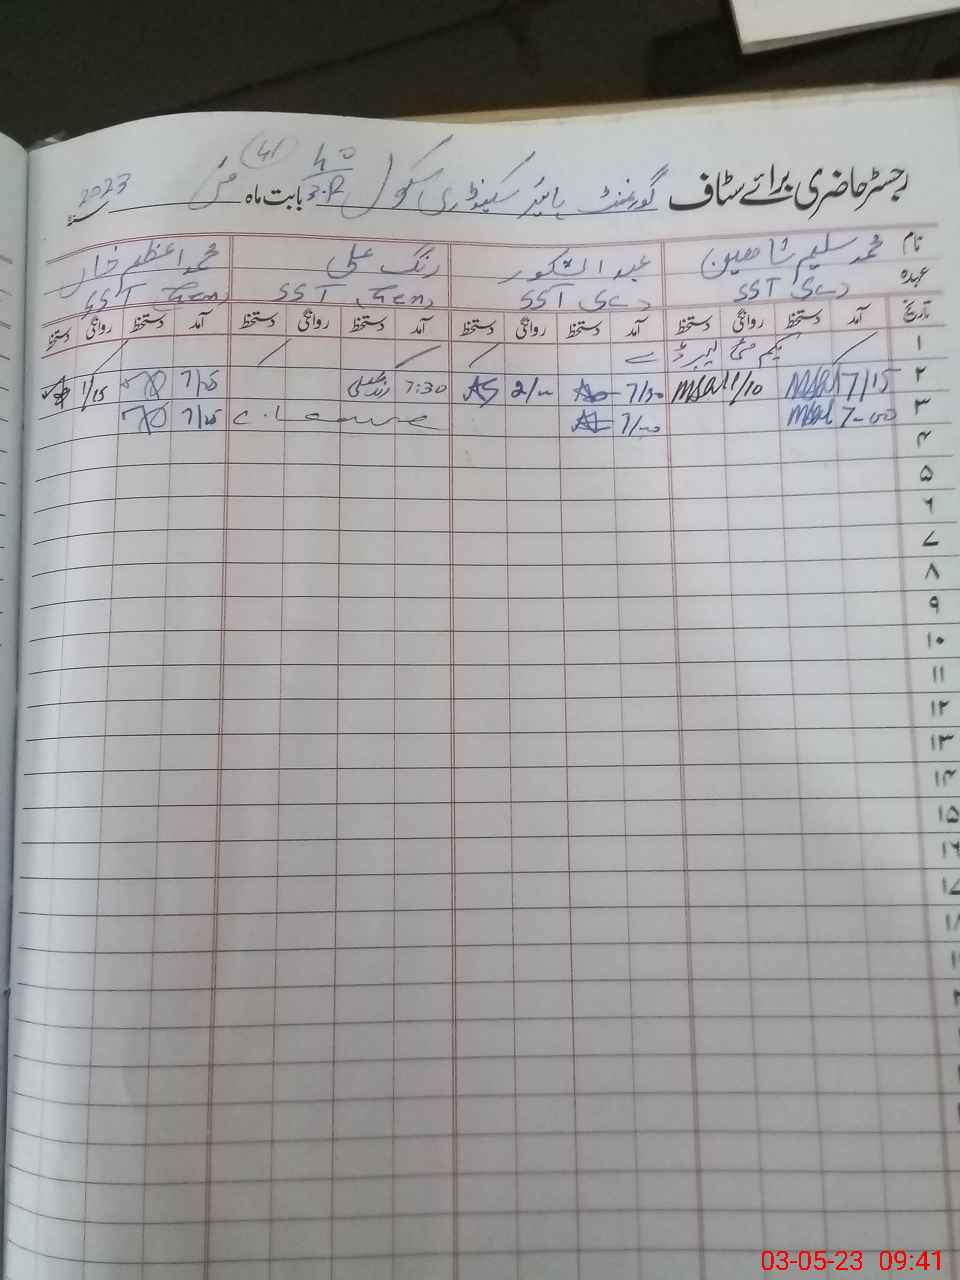 (41)
رجسٹر حاضری برائے سٹاف گورنمنٹ ہائیر سیکنڈری سکول بابت ماہ مئی 2023
نام محمد سلیم شاھین عبد الشکور رنگ علی محمد اعظم خان
عہدہ SST Sci SST Sci SST Gen SST Gen
تاریخ آمد دستخط روانگی دستخط آمد دستخط روانگی دستخط آمد دستخط روانگی دستخط آمد دستخط روانگی دستخط
۱ یکم مئی لیبر ڈے
۲ 7/15 1/10 7/30 2/00 7:30 رنگ علی 7/25 1/15
۳ 7-00 7/00 7/25
۴
۵
۶
۷
۸
۹
۱۰
۱۱
۱۲
۱۳
۱۴
۱۵
۱۶
۱۷
۱۸
03-05-23 09:41